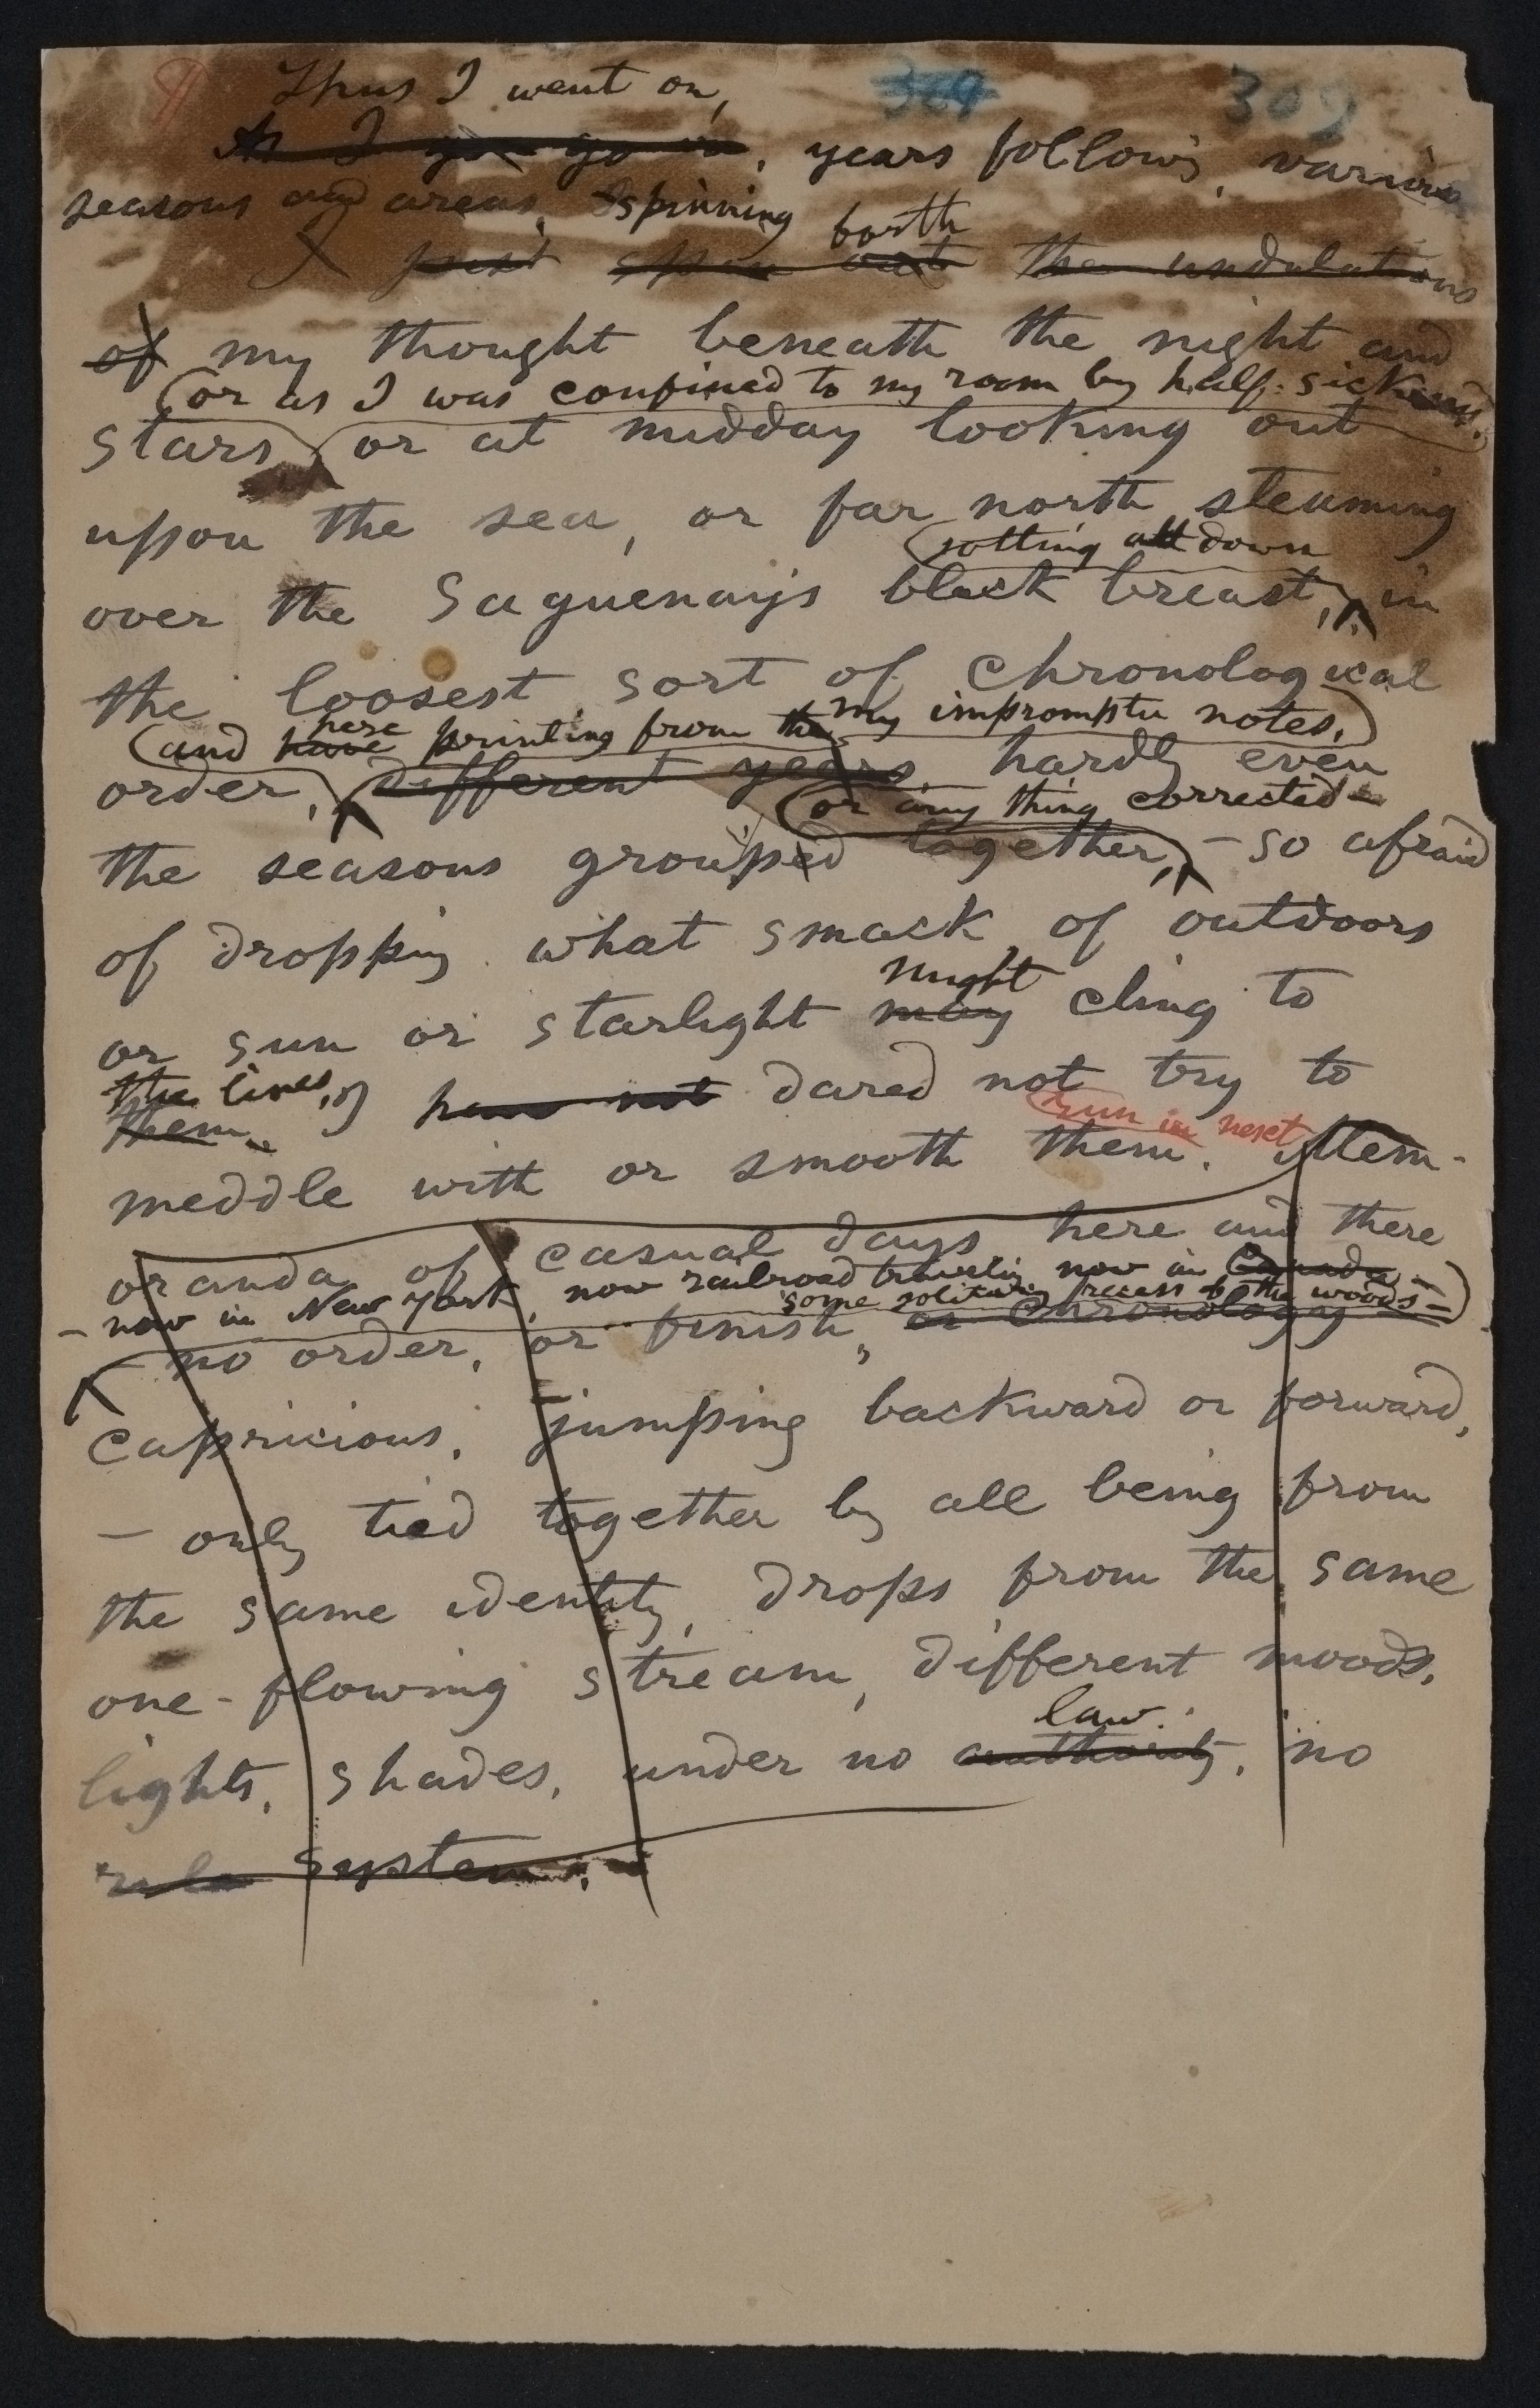 ¶ Thus I went on, 309 309
As I go on, years following, various
seasons and areas, spinning forth
I just spun out the undulations
of my thought beneath the night and
(or as I was confined to my room by half-sickness,)
stars, or at midday looking out
upon the sea, or far north steaming
(jotting all down
over the Saguenay's black breast, in
the loosest sort of chronological
(and have here printing from the my impromptu notes,)
order, different years, hardly even
(or any thing corrected—
the seasons grouped together, — so afraid
of dropping what smack of outdoors
might
or sun or starlight may cling to
the lines, I
them. have not dared not try to
(run in next
meddle with or smooth them. Mem-
oranda of casual days here and there
— now in New York, now railroad traveling now in Canada —
some solitary recess of the woods —)
— no order, or finish, or chronology
capricious, jumping backward or forward,
— only tied together by all being from
the same identity, drops from the same
one-flowing stream, different moods,
law.
lights, shades, under no authority, no
rule system.